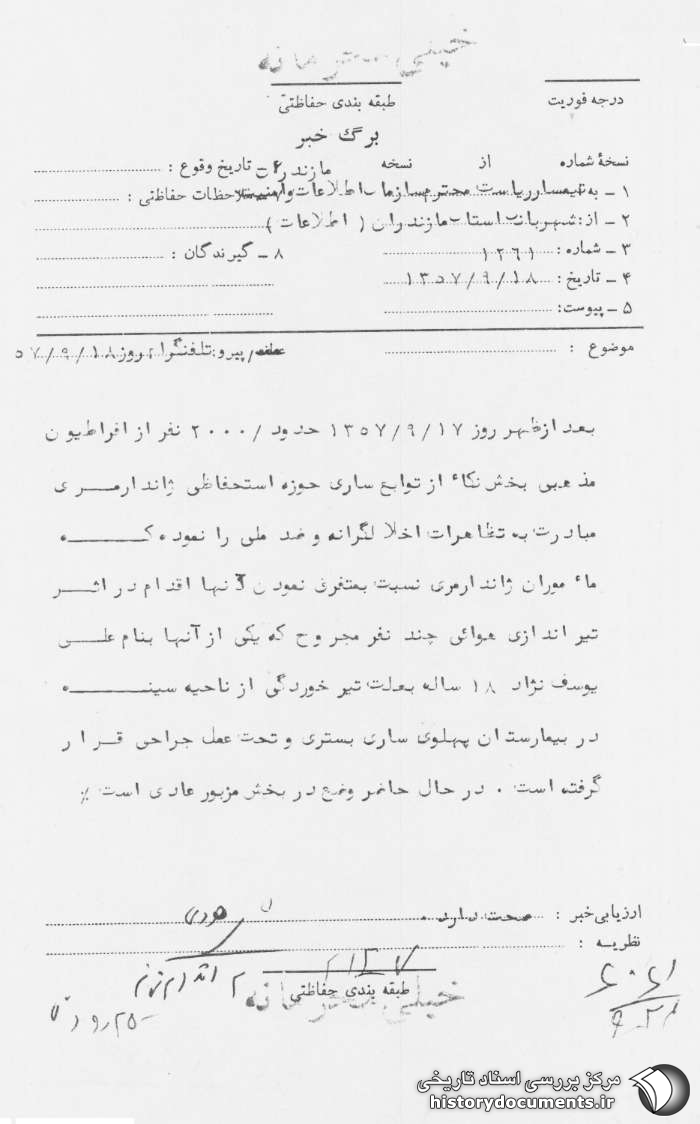 خیلی محرمانه
درجه فوریت
طبقه بندی حفاظتی
برگ خبر
نسخهٔ شماره از نسخه مازندران
۶ ـ تاریخ وقوع :
۱ ـ به تیمسار ریاست محترم سازمان اطلاعات و امنیت ملاحظات حفاظتی :
۲ ـ از: شهربانی استان مازندران ( اطلاعات )
۳ ـ شماره : ۱۲۶۱
۸ ـ گیرندگان :
۴ ـ تاریخ : ۱۳۵۷/۹/۱۸
۵ ـ پیوست:
موضوع :
پیرو: تلفنگرام روز ۵۷/۹/۱۸
بعد ازظهر روز ۱۳۵۷/۹/۱۷ حدود /۲۰۰۰ نفر از افراطیون
مذهبی بخش نکاء از توابع ساری حوزه استحفاظی ژاندارمری
مبادرت به تظاهرات اخلالگرانه و ضد ملی را نموده که
ماء موران ژاندارمری نسبت بمتفرق نمودن آنها اقدام در اثر
تیر اندازی هوائی چند نفر مجروح که یکی از آنها بنام علی
یوسف نژاد ۱۸ ساله بعلت تیر خوردگی از ناحیه سینه
در بیمارستان پهلوی ساری بستری و تحت عمل جراحی قرار
گرفته است . در حال حاضر وضع در بخش مزبور عادی است ٪
ارزیابی خبر : صحت دارد .
نظریه :
طبقه بندی حفاظتی
خیلی محرمانه
مرکز بررسی اسناد تاریخی
historydocuments.ir